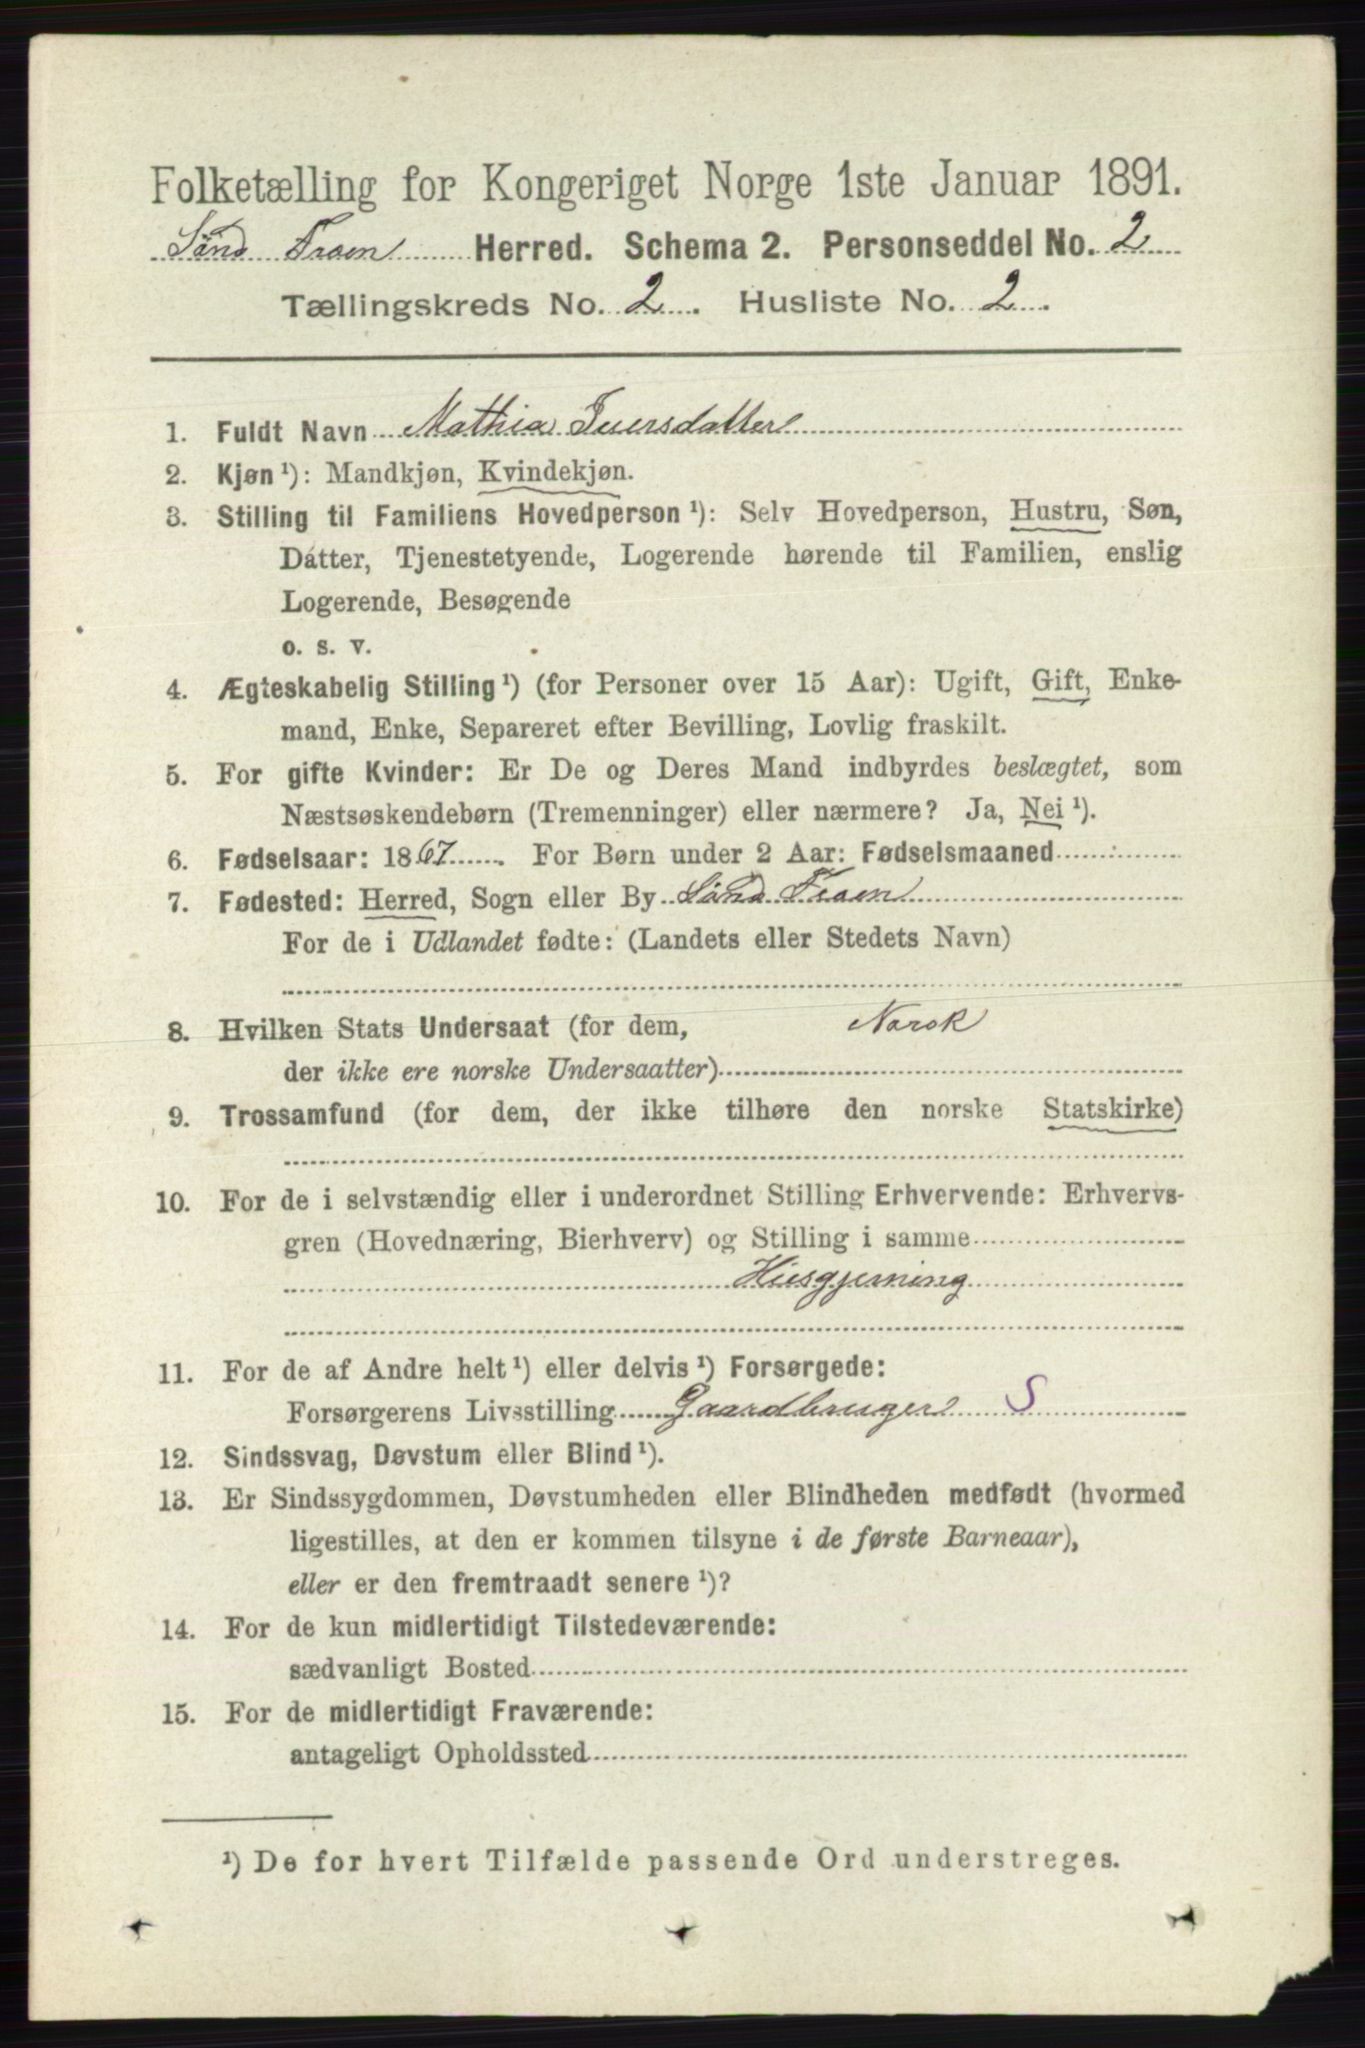 Folketælling for Kongeriget Norge 1ste Januar 1891.
Sönd Froen Herred. Schema 2. Personseddel No. 2
Tællingskreds No. 2. Husliste No. 2.
1. Fuldt Navn Mathia Iversdatter
2. Kjøn ¹): Mandkjøn, Kvindekjøn.
3. Stilling til Familiens Hovedperson ¹): Selv Hovedperson, Hustru, Søn,
Datter, Tjenestetyende, Logerende hørende til Familien, enslig
Logerende, Besøgende
o. s. v.
4. Ægteskabelig Stilling ¹) (for Personer over 15 Aar): Ugift, Gift, Enke-
mand, Enke, Separeret efter Bevilling, Lovlig fraskilt.
5. For gifte Kvinder: Er De og Deres Mand indbyrdes beslægtet, som
Næstsøskendebørn (Tremenninger) eller nærmere? Ja, Nei ¹).
6. Fødselsaar: 1867. For Børn under 2 Aar: Fødselsmaaned
7. Fødested: Herred, Sogn eller By Sönd Froen
For de i Udlandet fødte: (Landets eller Stedets Navn)
8. Hvilken Stats Undersaat (for dem, Norsk
der ikke ere norske Undersaatter)
9. Trossamfund (for dem, der ikke tilhøre den norske Statskirke)
10. For de i selvstændig eller i underordnet Stilling Erhvervende: Erhvervs-
gren (Hovednæring, Bierhverv) og Stilling i samme
Husgjerning
11. For de af Andre helt ¹) eller delvis ¹) Forsørgede:
Forsørgerens Livsstilling Gaardbruger S
12. Sindssvag, Døvstum eller Blind ¹).
13. Er Sindssygdommen, Døvstumheden eller Blindheden medfødt (hvormed
ligestilles, at den er kommen tilsyne i de første Barneaar),
eller er den fremtraadt senere ¹)?
14. For de kun midlertidigt Tilstedeværende:
sædvanligt Bosted
15. For de midlertidigt Fraværende:
antageligt Opholdssted
¹) De for hvert Tilfælde passende Ord understreges.